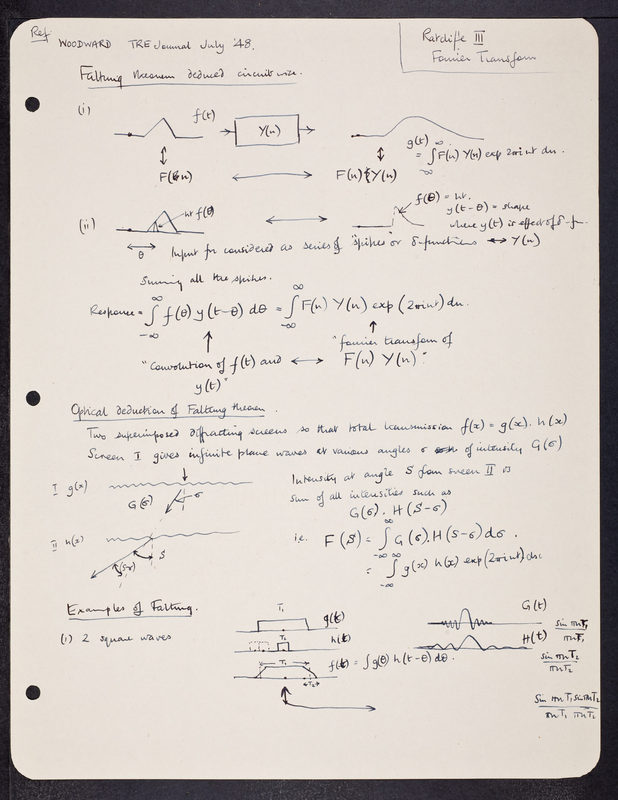 Ref
WOODWARD TRE Journal July '48.
Ratcliffe III
Fourier Transform
Faltung theorem deduced circuit wise.
(i)
f(t)
Y(n)
g(t)
= ∫_{-∞}^{∞} F(n) Y(n) exp 2πint dn.
F(n)
F(n) Y(n)
(ii)
ht f(θ)
θ
f(θ) = ht.
y(t-θ) = shape
where y(t) is effect of δ-fn.
Input fn considered as series of "spikes" or δ-functions ↔ Y(n)
Summing all the spikes.
Response = ∫_{-∞}^{∞} f(θ) y(t-θ) dθ = ∫_{-∞}^{∞} F(n) Y(n) exp(2πint) dn.
"Convolution of f(t) and y(t)" ↔ "fourier transform of F(n) Y(n)"
Optical deduction of Faltung theorem.
Two superimposed diffracting screens so that total transmission f(x) = g(x). h(x)
Screen I gives infinite plane waves at various angles σ of intensity G(σ)
I g(x)
G(σ)
σ
II h(x)
S
(S-σ)
Intensity at angle S from screen II is
sum of all intensities such as
G(σ). H(S-σ)
i.e. F(S) = ∫_{-∞}^{∞} G(σ). H(S-σ) dσ.
= ∫_{-∞}^{∞} g(x) h(x) exp(2πint) dx
Examples of Faltung.
(i) 2 square waves
T₁
g(t)
T₂
h(t)
T₁
f(t) = ∫g(θ) h(t-θ) dθ.
T₂
G(t)
sin πnT₁ / πnT₁
H(t)
sin πnT₂ / πnT₂
sin πnT₁ sin πnT₂ / πnT₁ πnT₂